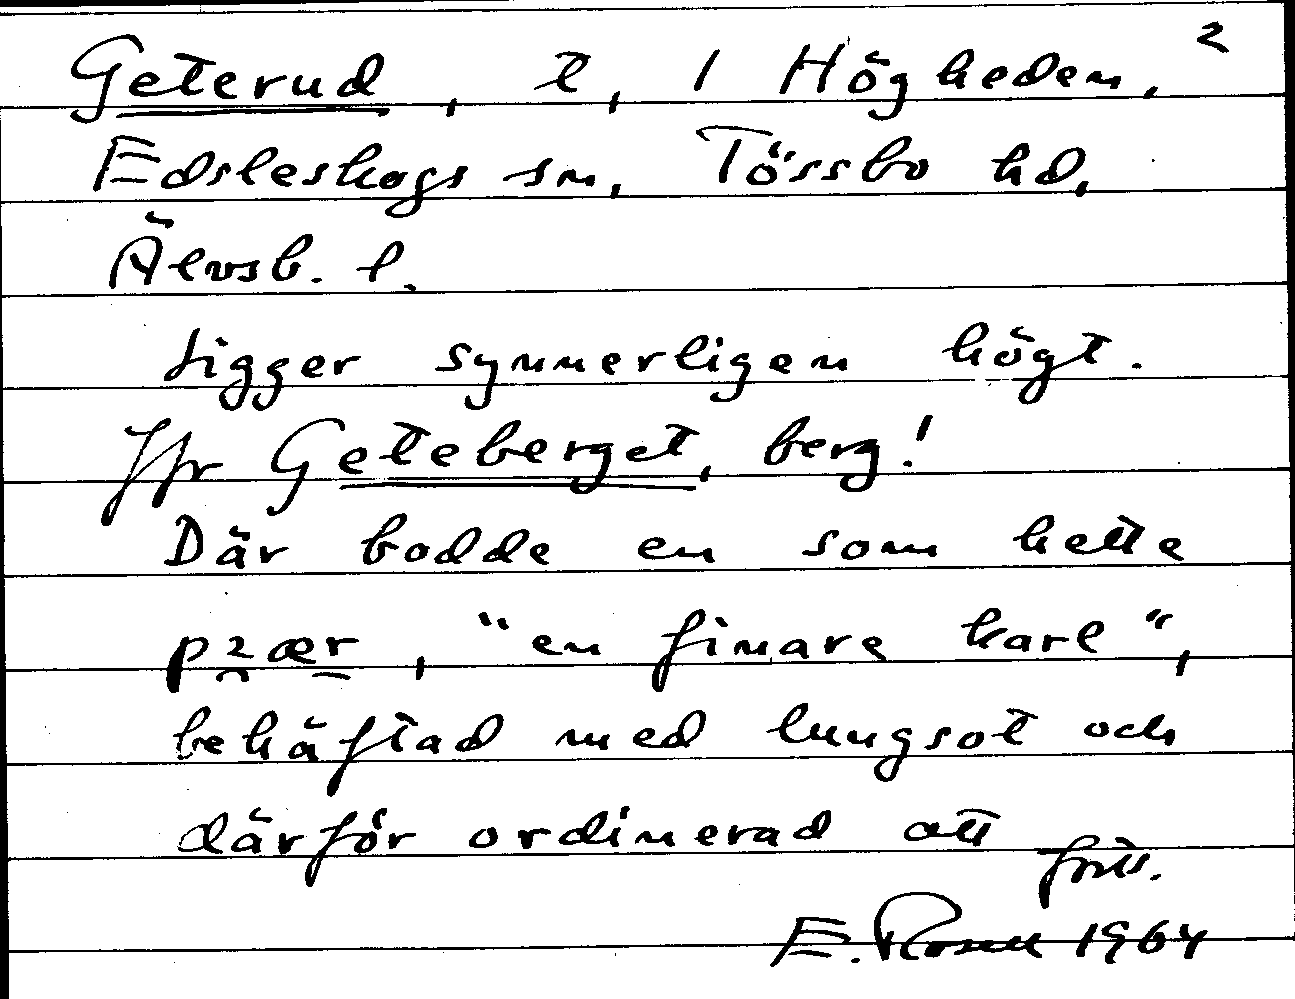 2
Geterud, t, 1 Högheden,
Edsleskogs sn, Tössbo hd,
Älvsb. l.
Ligger synnerligen högt.
Jfr Geteberget, berg!
Där bodde en som hette
pær, "en finare karl",
behäftad med lungsot och
därför ordinerad att
forts.
E. Rosell 1964